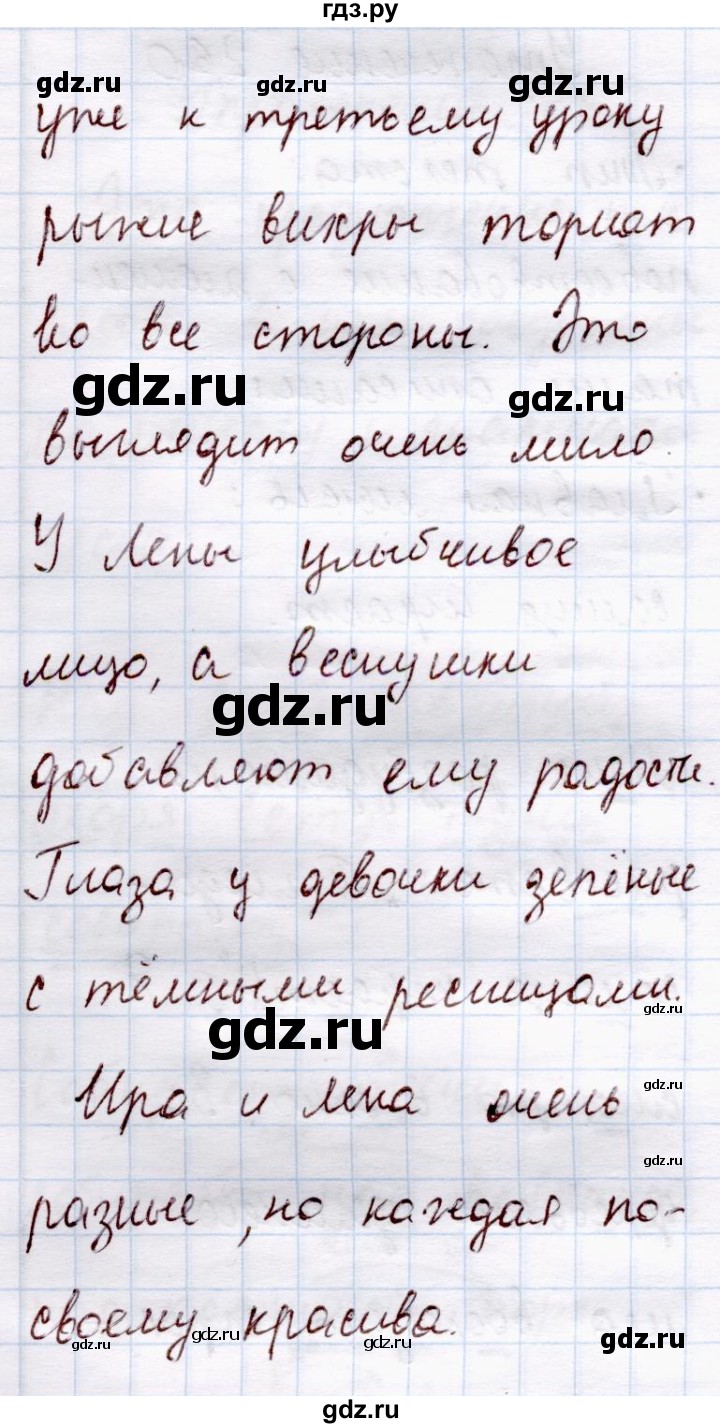 гдз.ру
gdz.ru gdz.ru gdz.ru
уже к третьему уроку
рыжие вихры торчат
во все стороны. Это
gdz.ru gdz.ru
выглядит очень мило.
У Лены улыбчивое
лицо, а веснушки
gdz.ru
добавляют ему радости.
Глаза у девочки зелёные
с тёмными ресницами.
gdz.ru
gdz.ru
gdz.ru
Ира и Лена очень
gdz.ru
разные, но каждая по-
своему красива.
gdz.ru gdz.ru gdz.ru gdz.ru
gdz.ru